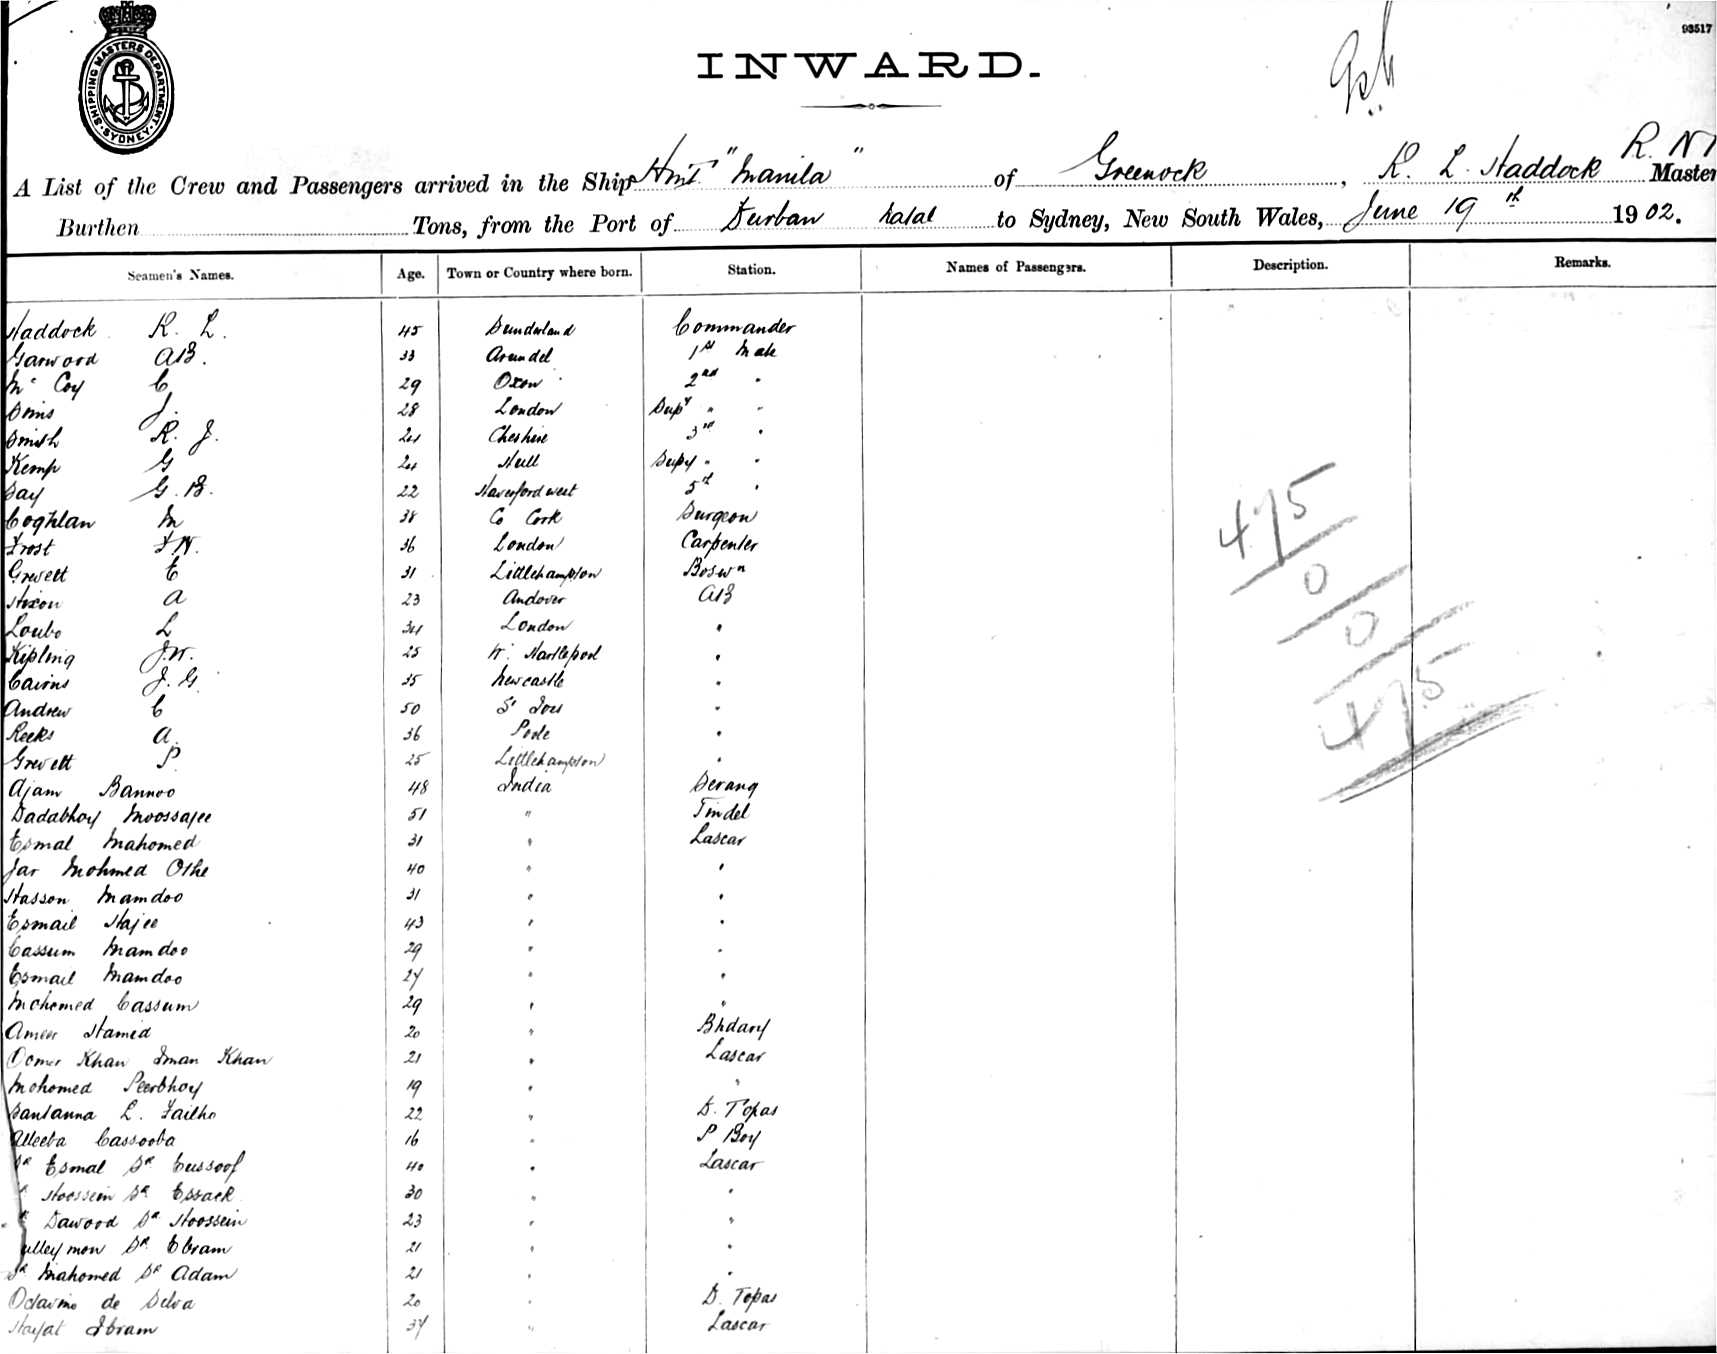 93517
SHIPPING MASTERS DEPARTMENT
SYDNEY
INWARD.
A List of the Crew and Passengers arrived in the Ship Hmt "Manila" of Greenock, R. L. Haddock R. N R Master
Burthen Tons, from the Port of Durban Natal to Sydney, New South Wales, June 19th 1902.
Seamen's Names. Age. Town or Country where born. Station. Names of Passengers. Description. Remarks.
Haddock R. L. 45 Sunderland Commander
Garwood AB. 33 Arundel 1st Mate
Mc Coy C 29 Oxon 2nd "
Sims J. 28 London Supy " "
Smith R. J. 24 Cheshire 3rd "
Kemp G 24 Hull Supy " "
Day G. B. 22 Haverfordwest 5th "
Coghlan M 38 Co Cork Surgeon
Frost F W. 36 London Carpenter
Grevett E 31 Littlehampton Boswn
Hixon A 23 Andover AB
Loubo L 34 London "
Kipling J. W. 25 W. Hartlepool "
Cairns J. G. 35 Newcastle "
Andrew C 50 St Ives "
Reeks A. 36 Poole "
Grevett P 25 Littlehampton "
Ajam Bannoo 48 India Serang
Dadabhoy Moossajee 51 " Tindel
Esmal Mahomed 31 " Lascar
Jar Mohmed Othe 40 " "
Hasson Mamdoo 31 " "
Esmail Hajee 43 " "
Cassum Mamdoo 29 " "
Esmail Mamdoo 27 " "
Mohomed Cassum 29 " "
Ameer Hamed 20 " Bhdary
Oomer Khan Iman Khan 21 " Lascar
Mohomed Peerbhoy 19 " "
Santanna L. Failho 22 " D. Topas
Alleeba Cassooba 16 " P Boy
Sk Esmal Sk Eussoof 40 " Lascar
Sk Hoossein Sk Essack 30 " "
Sk Dawood Sk Hoossein 23 " "
Sulleymon Sk Ebram 21 " "
Sk Mahomed Sk Adam 21 " "
Octavino de Selva 20 " D. Topas
Hayat Ibram 37 " Lascar
475
0
0
475